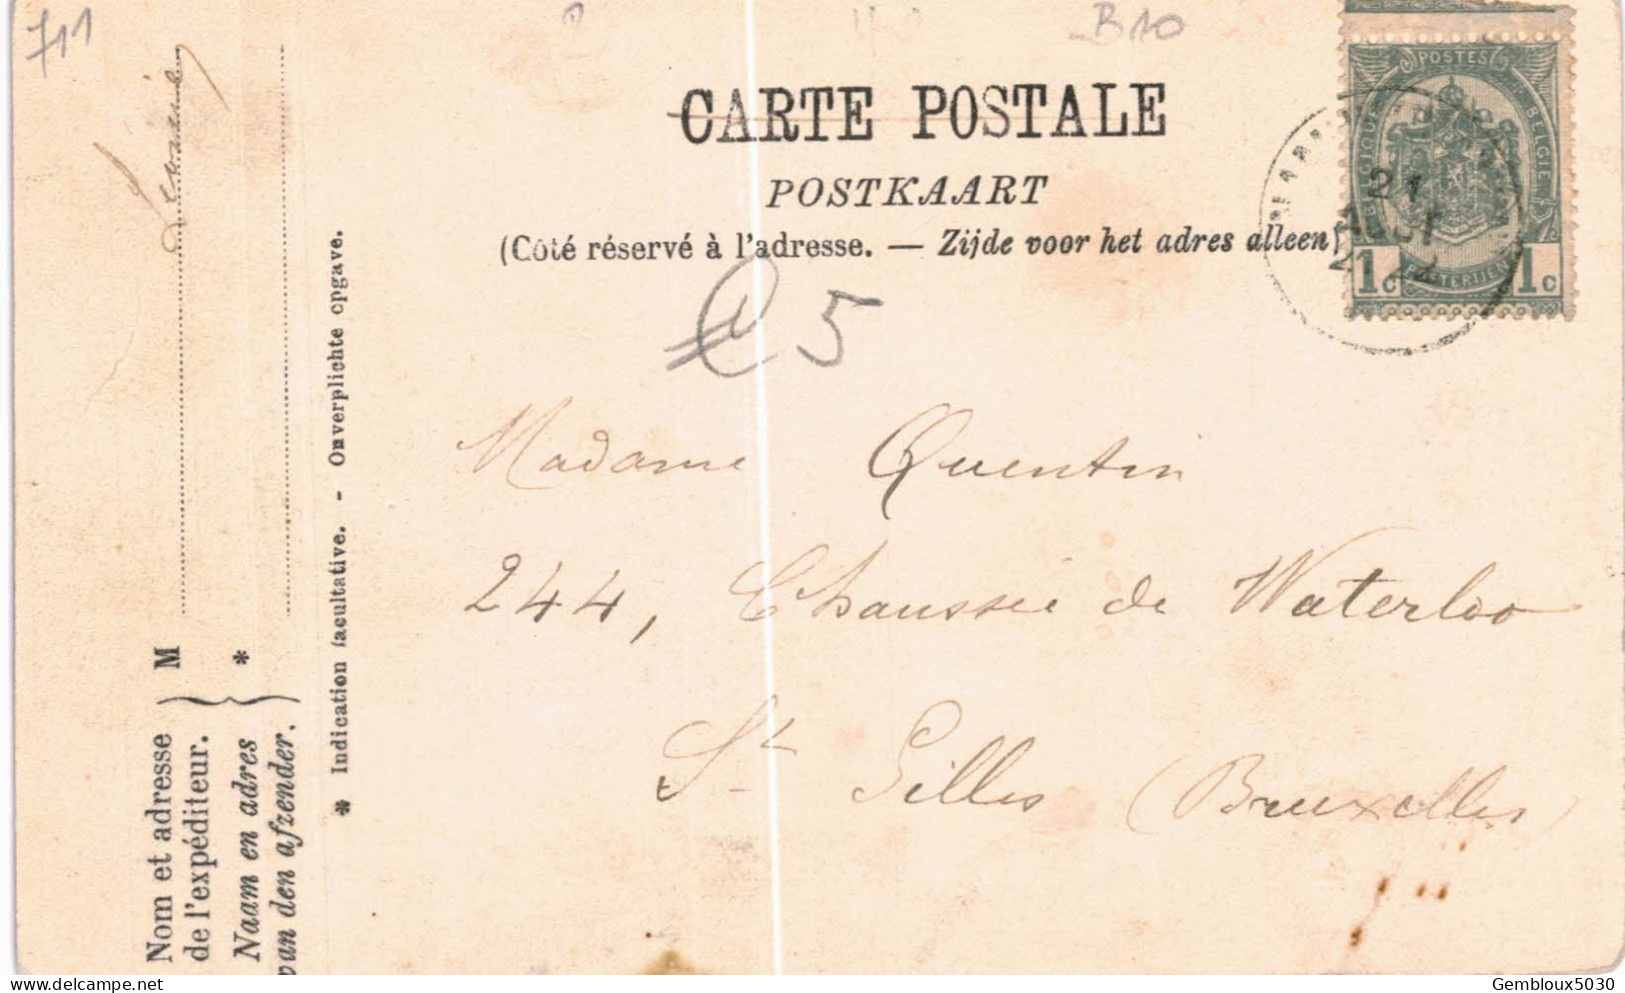 711
B10
CARTE POSTALE
POSTKAART
(Côté réservé à l'adresse. — Zijde voor het adres alleen)
POSTES
BELGIE
1c 1c
21
AOUT
€ 5
Madame Quentin
244, Chaussée de Waterloo
St Gilles (Bruxelles)
Nom et adresse
de l'expéditeur.
M
Naam en adres
van den afzender.
*
* Indication facultative. - Onverplichte opgave.
delcampe.net
Gembloux5030